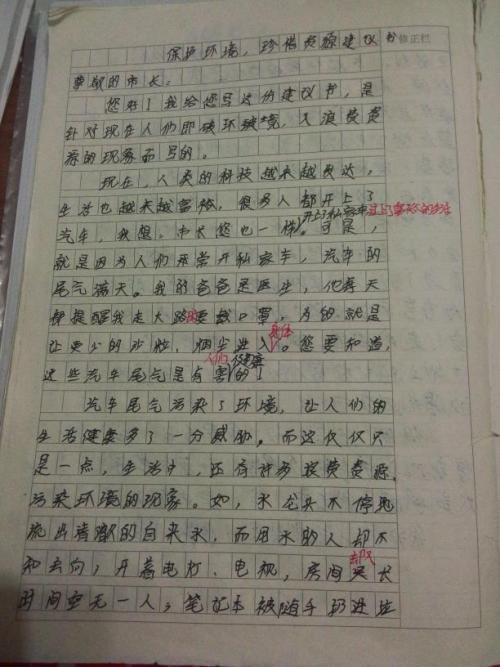 保护环境，珍惜资源建议书 修正栏
尊敬的市长：
您好！我给您写这份建议书，是
针对现在人们即破环境，又浪费资
源的现象而写的。
现在，人类的科技越来越发达，
生活也越来越富裕，很多人都开上了
开上了私家车过上了富裕的生活
汽车，我想，市长您也一样。可是，
就是因为人们经常开私家车，汽车的
尾气满天。我的爸爸是医生，他每天
都提醒我走大路要戴口罩，为的就是
让更少的沙粒，烟尘进入身体。您要知道，
这些汽车尾气是有害人们健康的！
汽车尾气污染了环境，让人们的
生活健康多了一分威胁。而这仅仅只
是一点，生活中，还有许多浪费资源，
污染环境的现象。如，水龙头不停地
流出清澈的自来水，而用水的人却不
知去向；开着电灯、电视，房间却又长
时间空无一人；笔记本被随手扔进垃